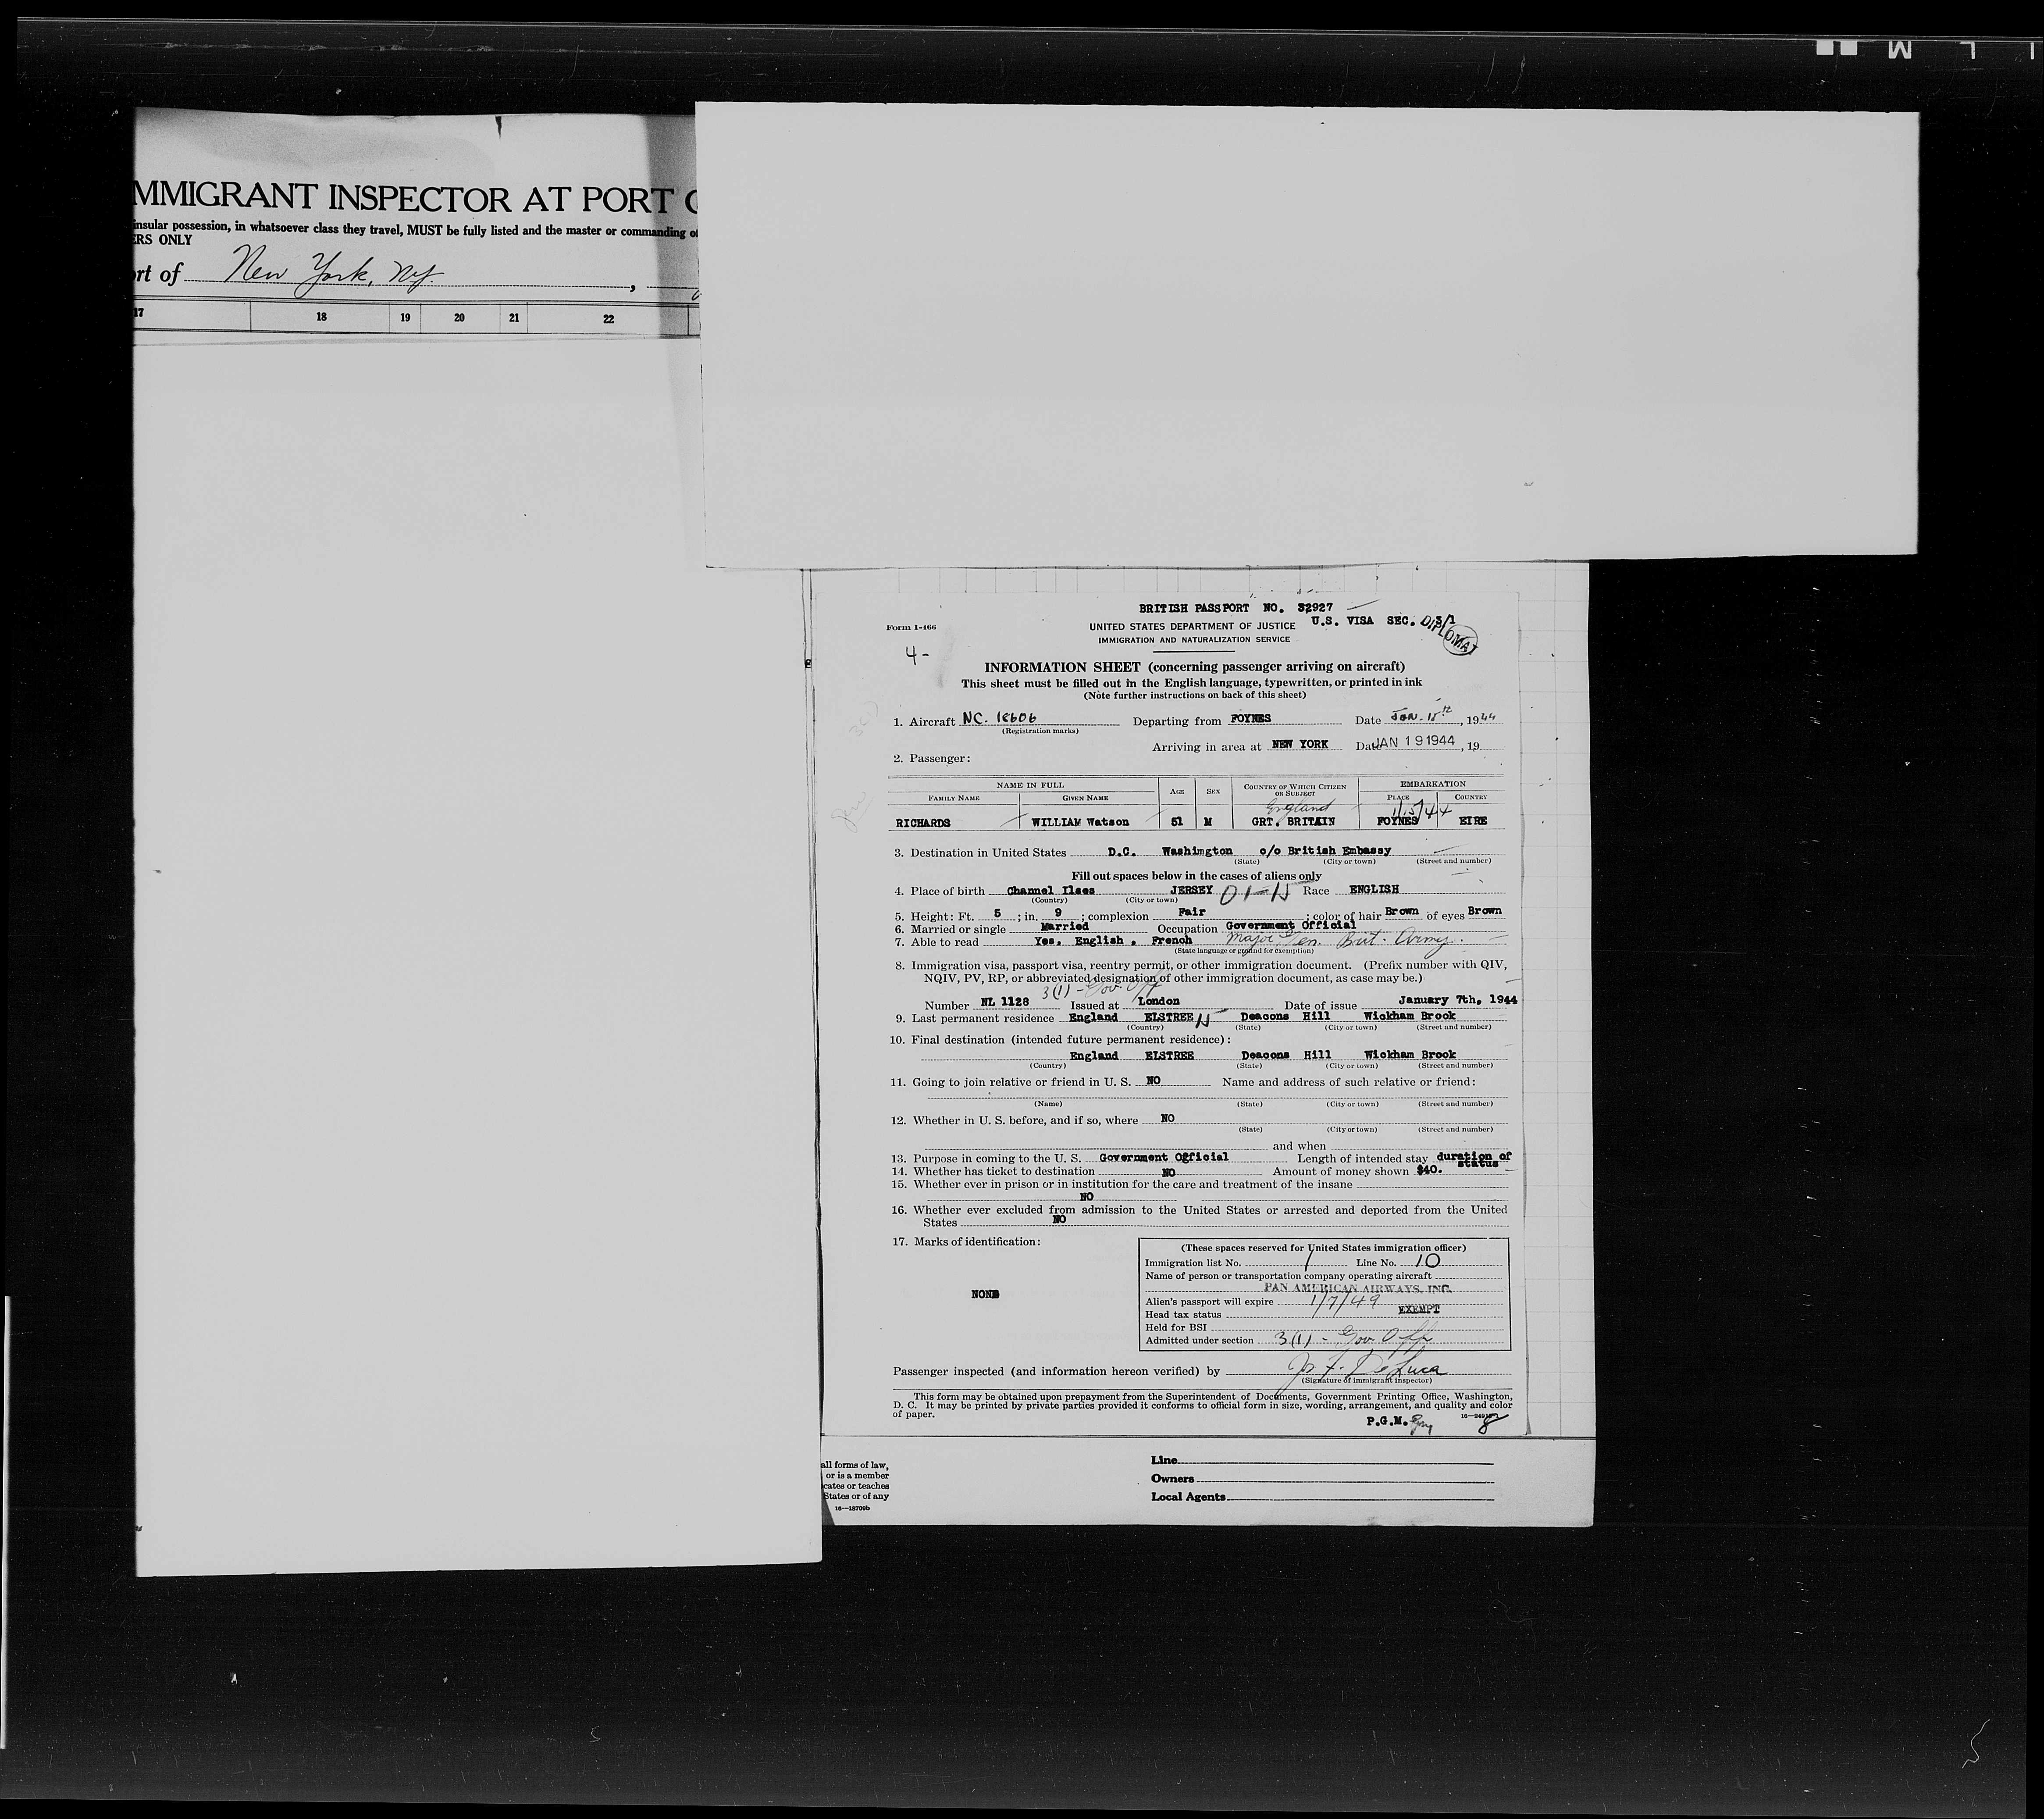 M L I
MMIGRANT INSPECTOR AT PORT
insular possession, in whatsoever class they travel, MUST be fully listed and the master or commanding of
ERS ONLY
ort of New York, NY. ,
17 18 19 20 21 22
BRITISH PASSPORT NO. 32927
Form I-466
UNITED STATES DEPARTMENT OF JUSTICE U.S. VISA SEC. DIPLOMAT
IMMIGRATION AND NATURALIZATION SERVICE
4-
INFORMATION SHEET (concerning passenger arriving on aircraft)
This sheet must be filled out in the English language, typewritten, or printed in ink
(Note further instructions on back of this sheet)
1. Aircraft NC. 18606 Departing from FOYNES Date JAN. 15th, 1944
(Registration marks)
Arriving in area at NEW YORK Date JAN 19 1944, 19
2. Passenger:
NAME IN FULL AGE SEX COUNTRY OF WHICH CITIZEN OR SUBJECT EMBARKATION
FAMILY NAME GIVEN NAME PLACE COUNTRY
England 1/15/44
RICHARDS WILLIAM Watson 51 M GRT. BRITAIN FOYNES EIRE
3. Destination in United States D.C. Washington c/o British Embassy
(State) (City or town) (Street and number)
Fill out spaces below in the cases of aliens only
4. Place of birth Channel Iles JERSEY 01-15 Race ENGLISH
(Country) (City or town)
5. Height: Ft. 5 ; in. 9 ; complexion Fair ; color of hair Brown of eyes Brown
6. Married or single Married Occupation Government Official
7. Able to read Yes. English. French Major Gen. Brit. Army.
(State language or ground for exemption)
8. Immigration visa, passport visa, reentry permit, or other immigration document. (Prefix number with QIV,
NQIV, PV, RP, or abbreviated designation of other immigration document, as case may be.)
3(1) - Gov. Off
Number NL 1128 Issued at London Date of issue January 7th, 1944
9. Last permanent residence England ELSTREE Deacons Hill Wickham Brook
(Country) (State) (City or town) (Street and number)
10. Final destination (intended future permanent residence):
England ELSTREE Deacons Hill Wickham Brook
(Country) (State) (City or town) (Street and number)
11. Going to join relative or friend in U. S. NO Name and address of such relative or friend:
(Name) (State) (City or town) (Street and number)
12. Whether in U. S. before, and if so, where NO
(State) (City or town) (Street and number)
and when
13. Purpose in coming to the U. S. Government Official Length of intended stay duration of status
14. Whether has ticket to destination NO Amount of money shown $40.
15. Whether ever in prison or in institution for the care and treatment of the insane
NO
16. Whether ever excluded from admission to the United States or arrested and deported from the United
States NO
17. Marks of identification:
NONE
(These spaces reserved for United States immigration officer)
Immigration list No. 1 Line No. 10
Name of person or transportation company operating aircraft
PAN AMERICAN AIRWAYS, INC.
Alien's passport will expire 1/7/49
Head tax status EXEMPT
Held for BSI
Admitted under section 3(1) - Gov. Off
Passenger inspected (and information hereon verified) by Jo. F. DeLuca
(Signature of immigrant inspector)
This form may be obtained upon prepayment from the Superintendent of Documents, Government Printing Office, Washington,
D. C. It may be printed by private parties provided it conforms to official form in size, wording, arrangement, and quality and color
of paper.
P.G.M. 8
all forms of law,
or is a member
cates or teaches
States or of any
16—18709b
Line
Owners
Local Agents